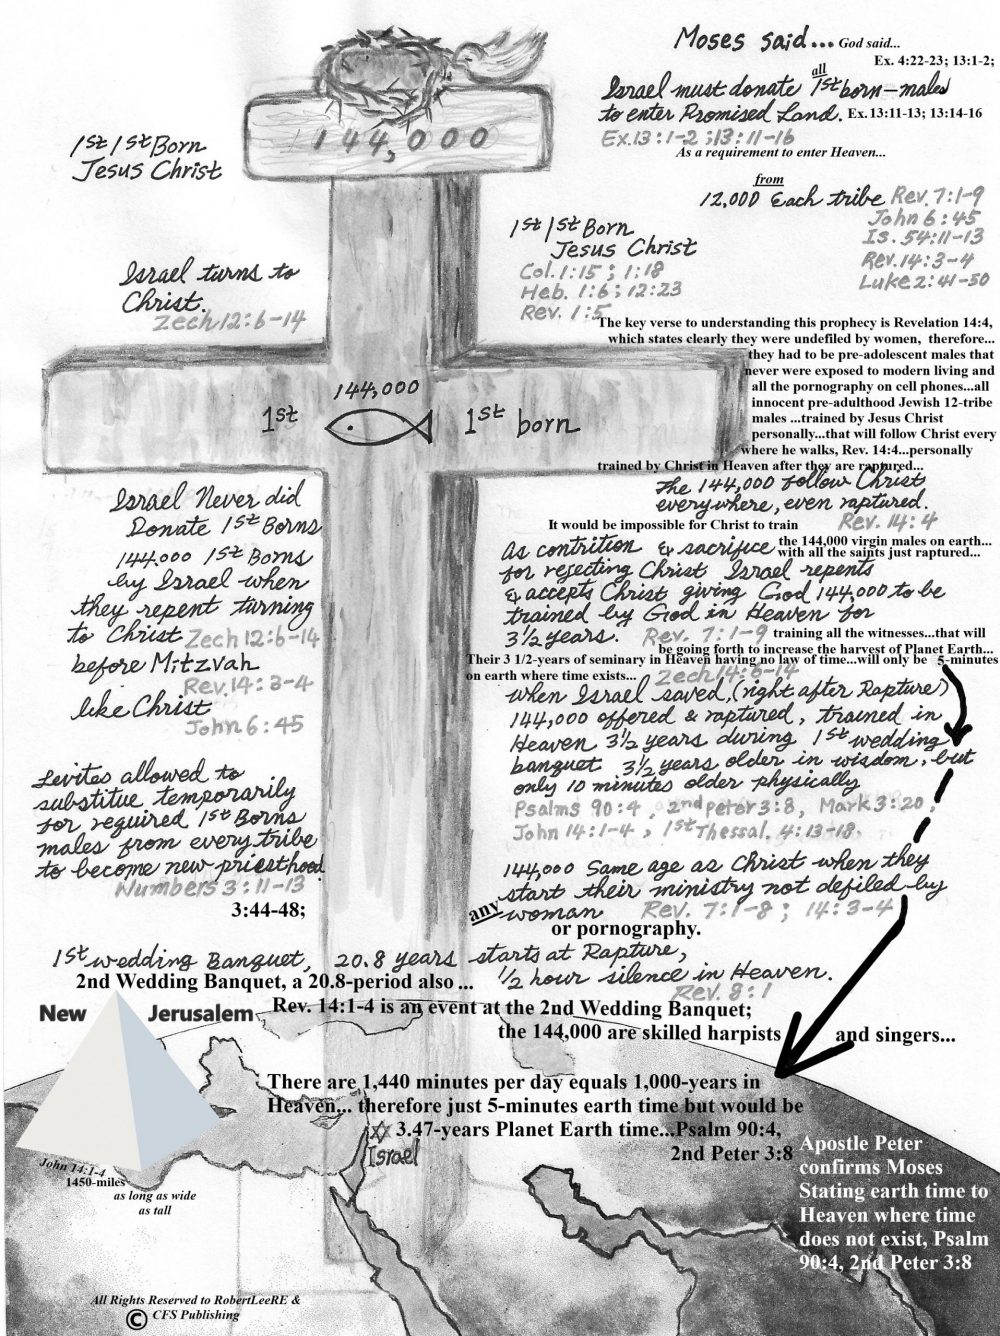 Moses said... God said...
Ex. 4:22-23; 13:1-2;
Israel must donate all 1st born-males
to enter Promised Land. Ex. 13:11-13; 13:14-16
Ex.13:1-2; 13:11-16
As a requirement to enter Heaven...
144,000
1st 1st Born
Jesus Christ
from
12,000 Each tribe Rev. 7:1-9
John 6:45
Is. 54:11-13
Rev. 14:3-4
Luke 2:41-50
1st 1st Born
Jesus Christ
Col. 1:15; 1:18
Heb. 1:6; 12:23
Rev. 1:5
Israel turns to
Christ.
Zech 12:6-14
The key verse to understanding this prophecy is Revelation 14:4,
which states clearly they were undefiled by women, therefore...
they had to be pre-adolescent males that
never were exposed to modern living and
all the pornography on cell phones...all
innocent pre-adulthood Jewish 12-tribe
males ...trained by Jesus Christ
personally...that will follow Christ every
where he walks, Rev. 14:4...personally
trained by Christ in Heaven after they are raptured...
144,000
1st
1st born
The 144,000 follow Christ
everywhere, even raptured.
Rev. 14:4
It would be impossible for Christ to train
the 144,000 virgin males on earth...
with all the saints just raptured...
As contrition & sacrifice
for rejecting Christ Israel repents
& accepts Christ giving God 144,000 to be
trained by God in Heaven for
3½ years. Rev. 7:1-9 training all the witnesses...that will
be going forth to increase the harvest of Planet Earth...
Their 3 1/2-years of seminary in Heaven having no law of time...will only be 5-minutes
on earth where time exists... Zech 14:6-14
when Israel saved, (right after Rapture)
144,000 offered & raptured, trained in
Heaven 3½ years during 1st wedding
banquet 3½ years older in wisdom, but
only 10 minutes older physically
Psalms 90:4, 2nd Peter 3:8, Mark 3:20,
John 14:1-4, 1st Thessal. 4:13-18,
144,000 Same age as Christ when they
start their ministry not defiled by
any woman Rev. 7:1-8; 14:3-4
or pornography.
Israel Never did
Donate 1st Borns
144,000 1st Borns
by Israel when
they repent turning
to Christ Zech 12:6-14
before Mitzvah
Rev. 14:3-4
like Christ
John 6:45
Levites allowed to
substitue temporarily
for required 1st Borns
males from every tribe
to become new priesthood
Numbers 3:11-13
3:44-48;
1st wedding Banquet, 20.8 years starts at Rapture,
½ hour silence in Heaven.
Rev. 8:1
2nd Wedding Banquet, a 20.8-period also ...
Rev. 14:1-4 is an event at the 2nd Wedding Banquet;
the 144,000 are skilled harpists and singers...
New Jerusalem
There are 1,440 minutes per day equals 1,000-years in
Heaven... therefore just 5-minutes earth time but would be
3.47-years Planet Earth time...Psalm 90:4,
2nd Peter 3:8
Israel
John 14:1-4
1450-miles
as long as wide
as tall
Apostle Peter
confirms Moses
Stating earth time to
Heaven where time
does not exist, Psalm
90:4, 2nd Peter 3:8
All Rights Reserved to RobertLeeRE &
© CFS Publishing